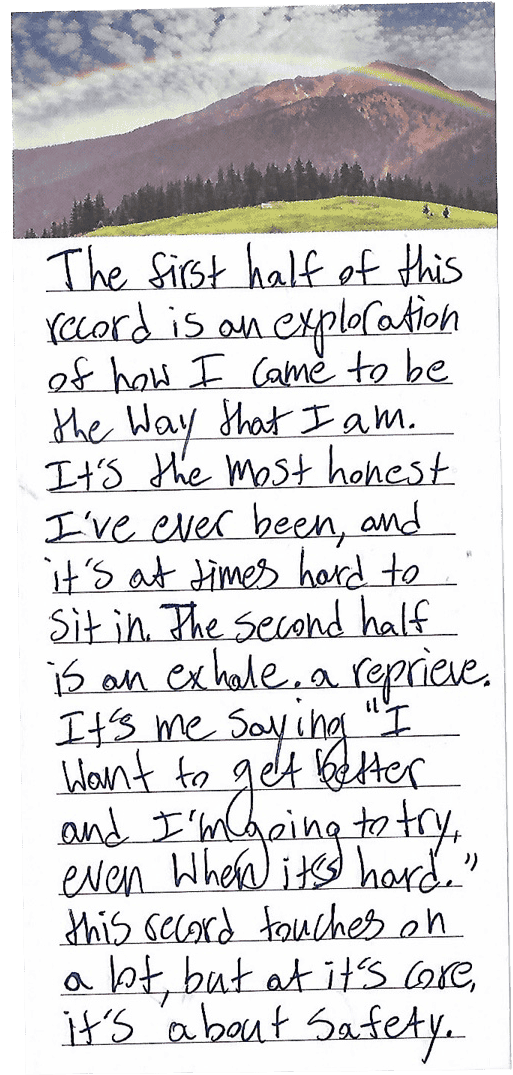 The first half of this
record is an exploration
of how I came to be
the way that I am.
It's the most honest
I've ever been, and
it's at times hard to
sit in. The second half
is an exhale. a reprieve.
It's me saying "I
want to get better
and I'm going to try,
even when it's hard."
this record touches on
a lot, but at it's core,
it's about safety.